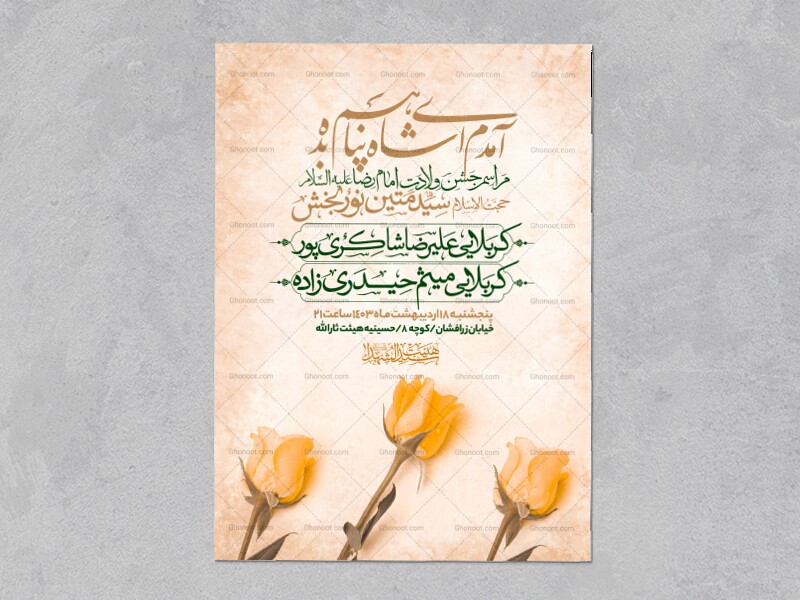 آمدم ای شاه پناهم بده
مراسم جشن ولادت امام رضا علیه السلام
حجت الاسلام سید متین نوربخش
کربلایی علیرضا شاکری پور
کربلایی میثم حیدری زاده
پنجشنبه ۱۸ اردیبهشت ماه ۱۴۰۳ ساعت ۲۱
خیابان زرافشان / کوچه ۸ / حسینیه هیئت ثارالله
هیئت سیدالشهدا
Ghonoot.com